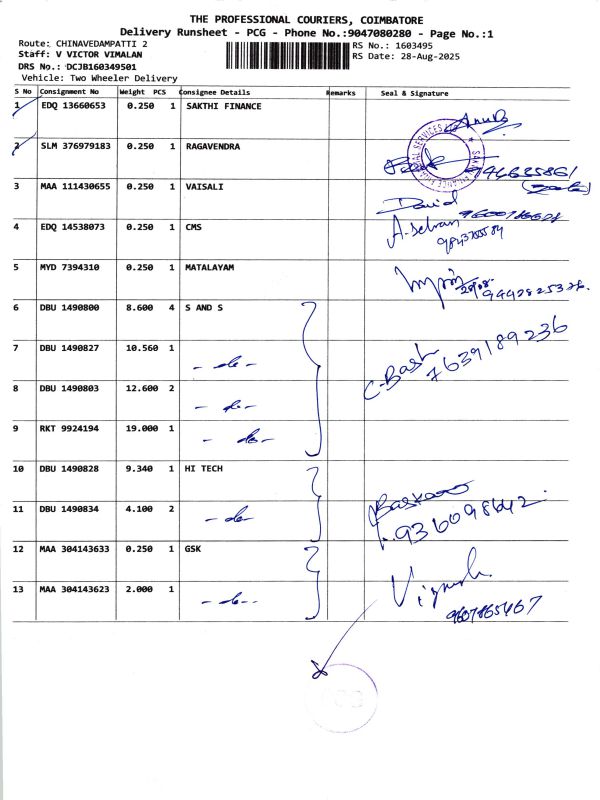 THE PROFESSIONAL COURIERS, COIMBATORE
Delivery Runsheet - PCG - Phone No.:9047080280 - Page No.:1
Route: CHINAVEDAMPATTI 2
RS No.: 1603495
Staff: V VICTOR VIMALAN
RS Date: 28-Aug-2025
DRS No.: DCJB160349501
Vehicle: Two Wheeler Delivery
S No Consignment No Weight PCS Consignee Details Remarks Seal & Signature
1 EDQ 13660653 0.250 1 SAKTHI FINANCE
2 SLM 376979183 0.250 1 RAGAVENDRA
3 MAA 111430655 0.250 1 VAISALI David
4 EDQ 14538073 0.250 1 CMS A. Selvan
5 MYD 7394310 0.250 1 MATALAYAM
6 DBU 1490800 8.600 4 S AND S
7 DBU 1490827 10.560 1 - do - C. Bash 7639189236
8 DBU 1490803 12.600 2 - do -
9 RKT 9924194 19.000 1 - do -
10 DBU 1490828 9.340 1 HI TECH
11 DBU 1490834 4.100 2 - do -
12 MAA 304143633 0.250 1 GSK
13 MAA 304143623 2.000 1 - do - Vignesh
PCG